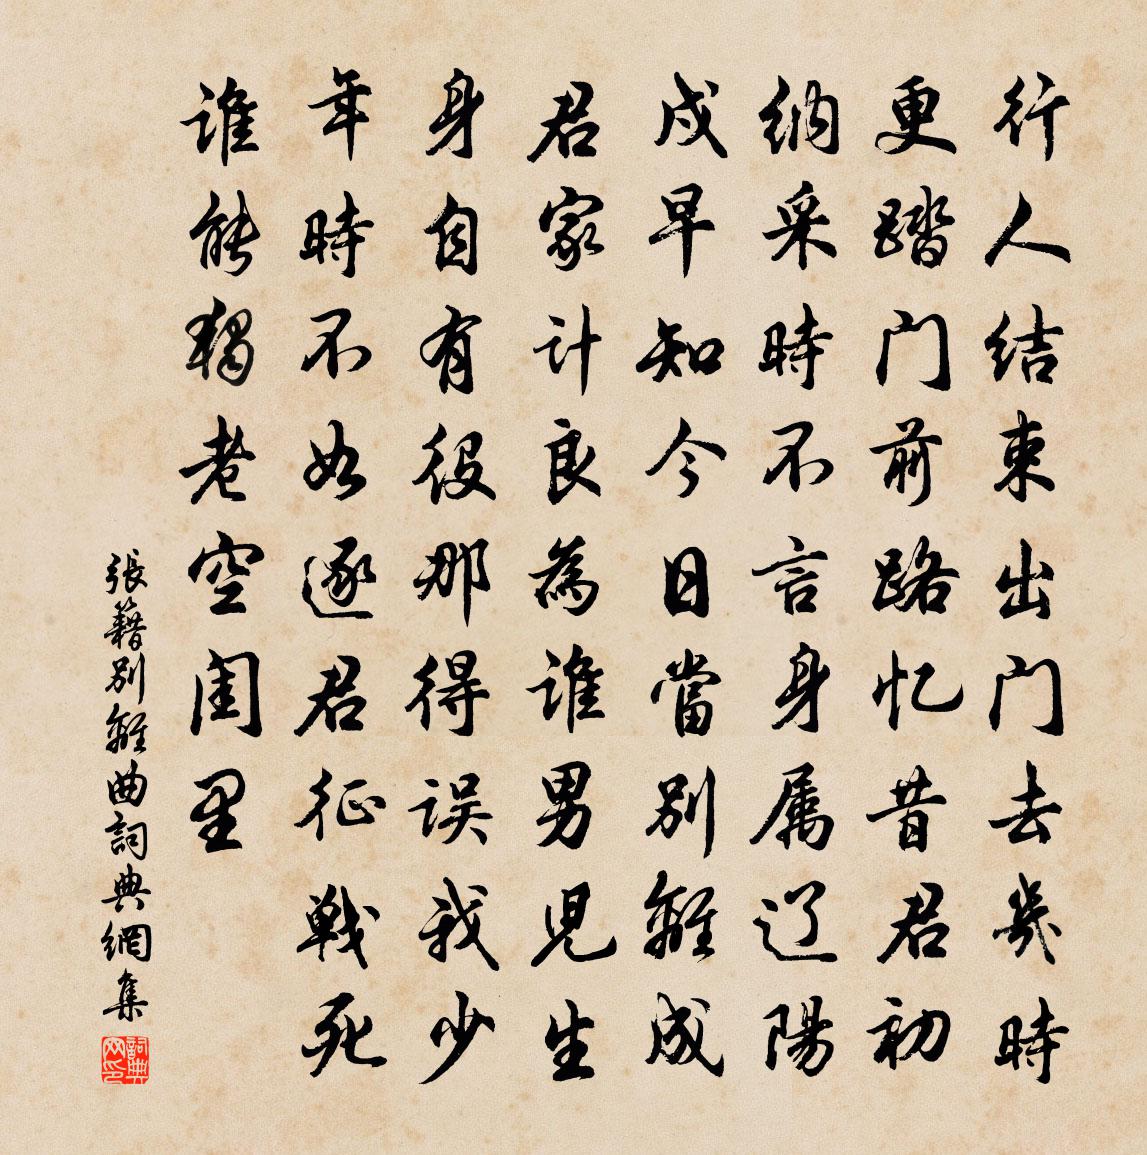 行人结束出门去幾時
更踏门前路忆昔君初
纳采時不言身属辽陽
戍早知今日當别離成
君家计良為谁男児生
身自有役那得误我少
年時不如逐君征戦死
谁能獨老空闺里
張籍别離曲詞典網集
詞典网印